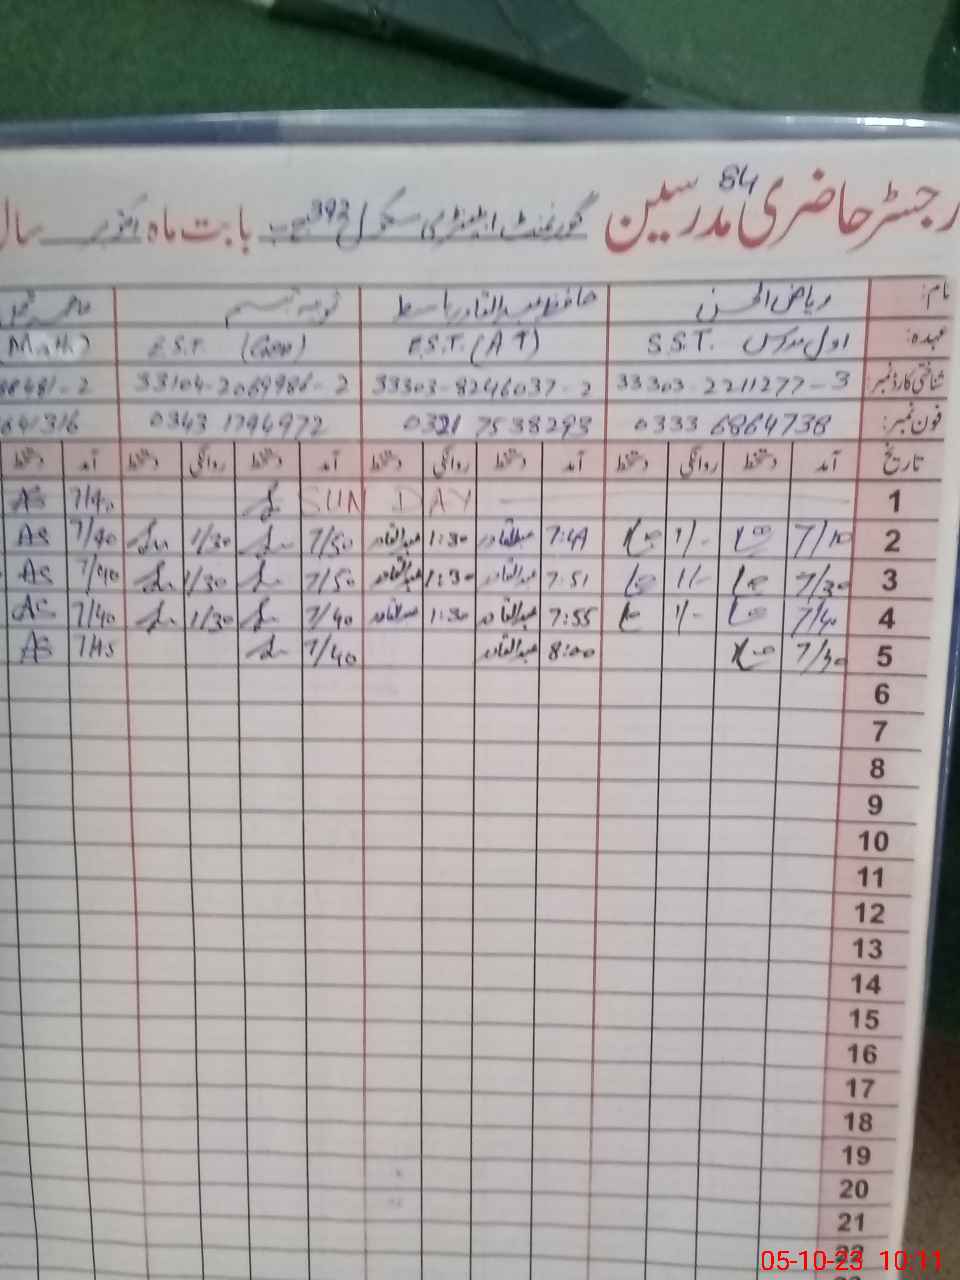 84
رجسٹر حاضری مدرسین گورنمنٹ ایلیمنٹری سکول 392 ج ب بابت ماہ اکتوبر سال
نام: ریاض الحسن حافظ عبدالقادر باسط ثوبیہ تبسم
عہدہ: اول مدرس S.S.T. E.S.T. (AT) E.S.T. (Gen) (Math)
شناختی کارڈ نمبر: 33303-2211277-3 33303-8246037-2 33104-2069986-2 68481-2
فون نمبر: 0333 6864738 0321 7538293 0343 1794972 641316
تاریخ آمد دستخط روانگی دستخط آمد دستخط روانگی دستخط آمد دستخط روانگی دستخط آمد دستخط
1 SUN DAY 7/40 AS
2 7/10 1/- 7:49 عبدالقادر 1:30 عبدالقادر 7/50 1/30 7/40 AS
3 7/30 1/- 7:51 عبدالقادر 1:30 عبدالقادر 7/50 1/30 7/40 AS
4 7/40 1/- 7:55 عبدالقادر 1:30 عبدالقادر 7/40 1/30 7/40 AS
5 7/30 8:00 عبدالقادر 7/40 7/45 AS
6
7
8
9
10
11
12
13
14
15
16
17
18
19
20
21
22
05-10-23 10:11